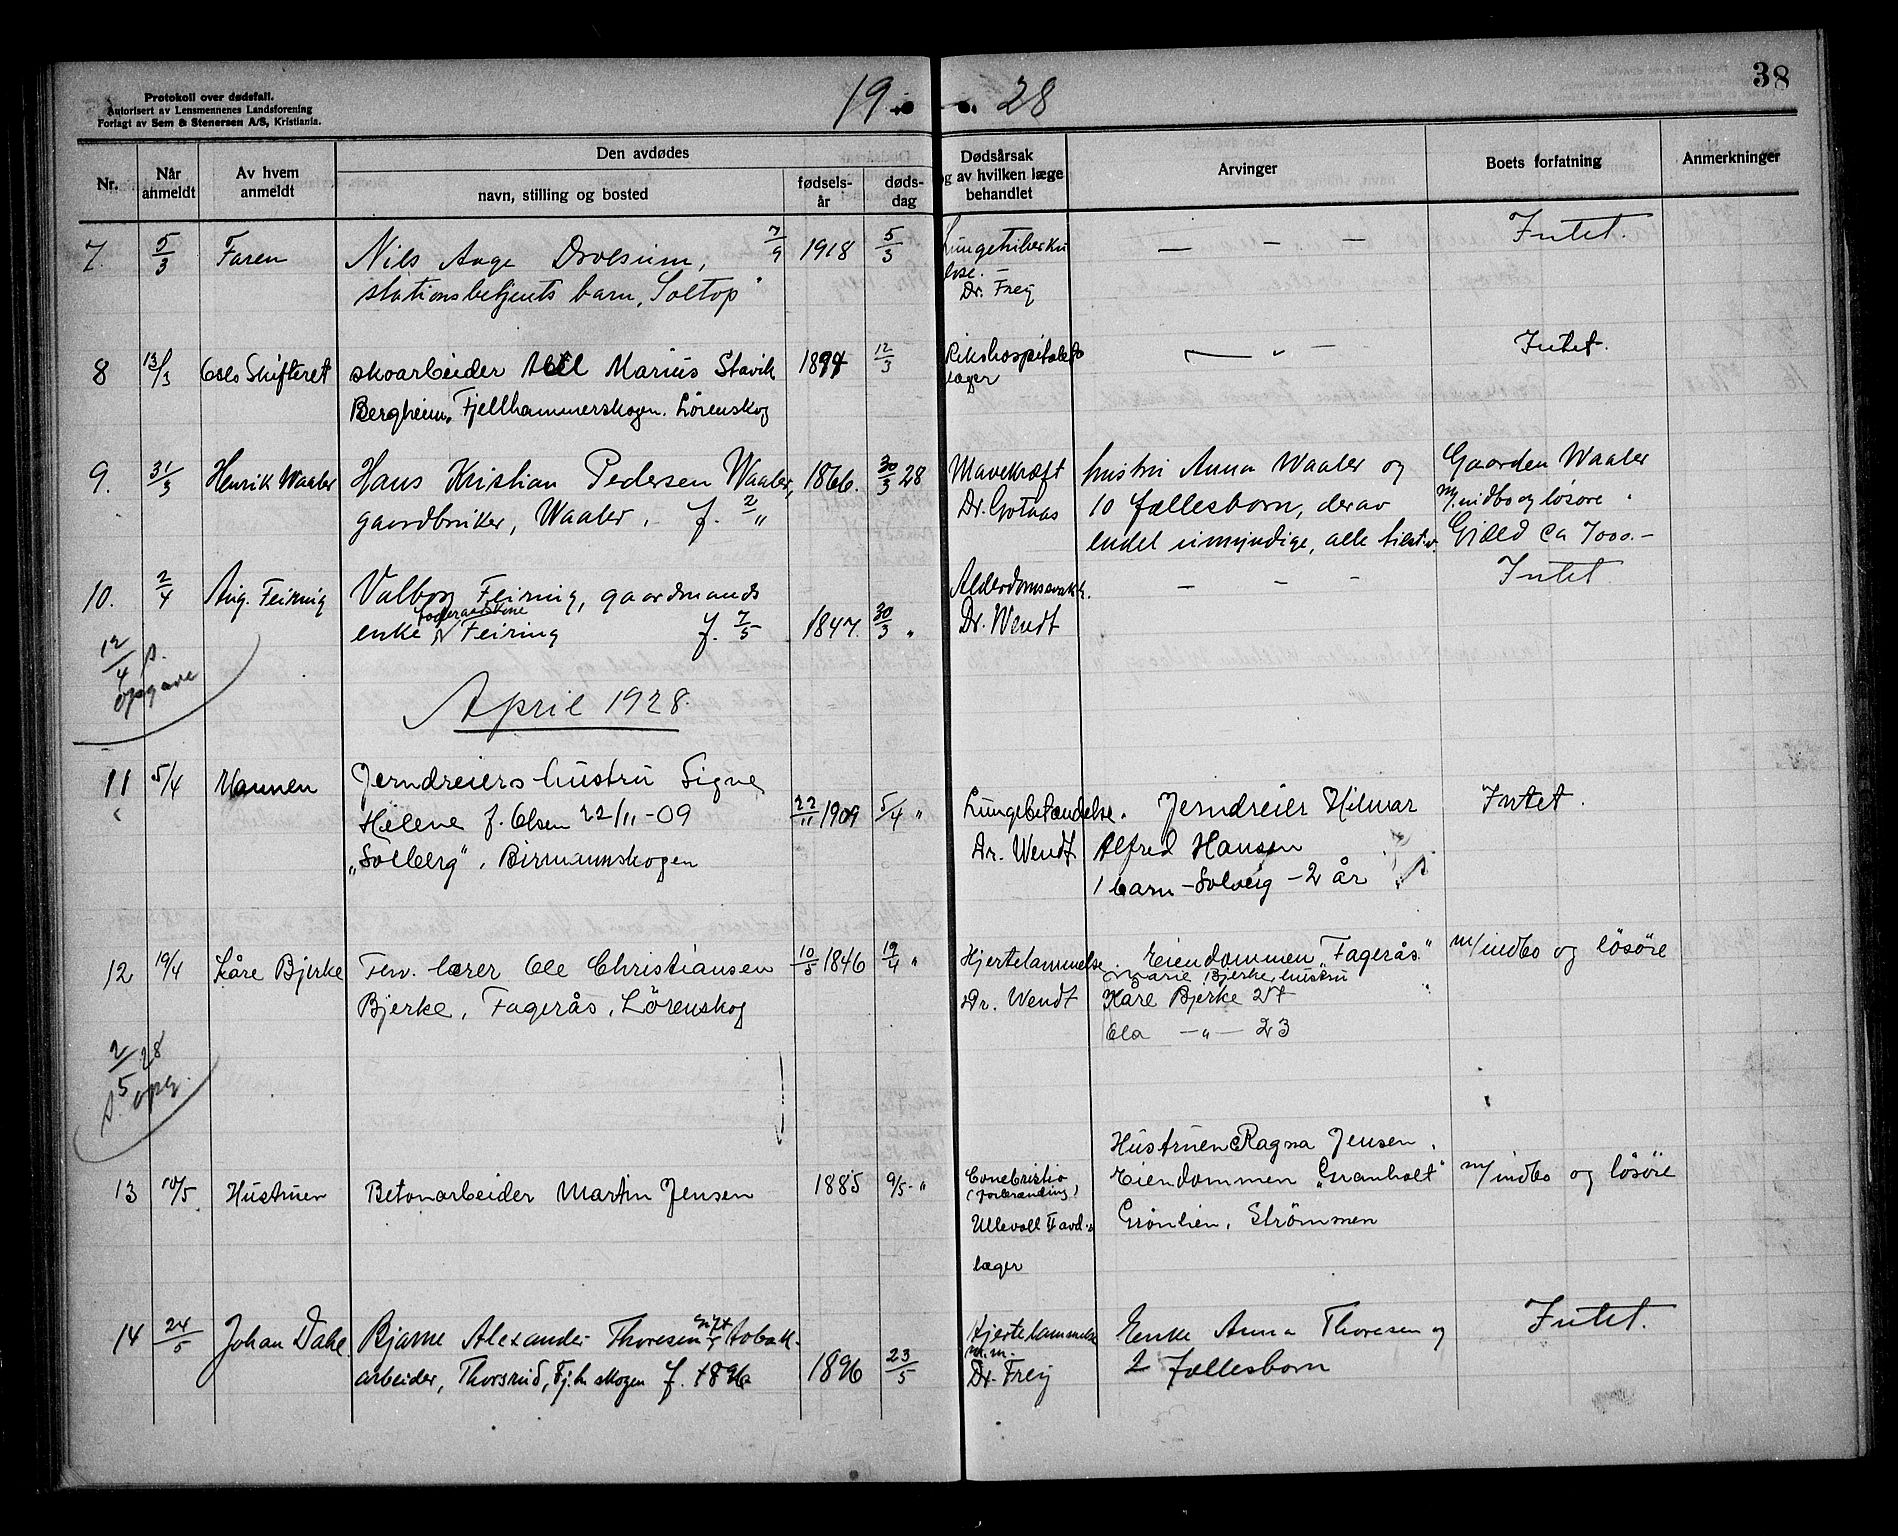 Protokoll over dødsfall.
Autorisert av Lensmennenes Landsforening
Forlagt av Sem & Stenersen A/S, Kristiania.
19 28
38
Nr.
Når anmeldt
Av hvem anmeldt
Den avdødes
navn, stilling og bosted
fødsels-år
døds-dag
Dødsårsak
og av hvilken læge
behandlet
Arvinger
Boets forfatning
Anmerkninger
7. 5/3 Faren Nils Aage Drolsum, 7/9 1918 5/3 Lungetuberku - - - Intet.
stationsbetjents barn, "Soltop" lose. -
Dr. Frey
8 13/3 Oslo Skifteret skoarbeider Marius Stavik 1894 12/3 Rikshospitalets - " - Intet.
Bergheim, Fjellhammerskogen. Lörenskog læger
9. 31/3 Henrik Waaler Hans Kristian Pedersen Waaler, 1866. 30/3 28 Mavekræft hustru Anna Waaler og Gaarden Waaler
gaardbruker, Waaler. f. 2/" Dr. Gotaas 10 fællesborn, derav m/indbo og løsøre
endel umyndige, alle Gjæld ca 7000.-
10. 2/4 Aug. Feiring Valborg Feiring, gaardmands Alderdomssvakh. - - - Intet.
enke Feiring f. 7/5 1847. 30/3 " Dr. Wendt
12/4 s.
opgave
April 1928.
11 5/4 Mannen Jerndreiers hustru Signe
Helene f. Olsen 22/11-09 22/11 1909 5/4 " Lungebetændelse. Jerndreier Hilmar Intet.
"Solberg", Birmannskogen Dr. Wendt Alfred Hansen
1 barn - Solveig - 2 år
12 19/4 Kåre Bjerke Fhv. lærer Ole Christiansen 10/5 1846 19/4 " Hjertelammelse. Eiendommen "Fagerås" m/indbo og løsöre
Marie Bjerke hustru
Bjerke, Fagerås, Lörenskog Dr. Wendt Kåre Bjerke 27
Ola -"- 23
2/5 28
s. opg.
Hustruen Ragna Jensen.
13 10/5 Hustruen Betonarbeider Martin Jensen 1885 9/5 - " Conebristio Eiendommen "Granholt" m/indbo og løsöre
(forbrænding)
Ullevoll I avd.s Grönlien, Strömmen
læger
14 24/5 Johan Dahl. Bjarne Alexander Thoresen gift tobak- Hjertelammelse Enke Anna Thoresen og Intet.
m.m.
arbeider, Thorsrud, Fj.h. skogen f. 1896 1896 23/5 Dr. Frey 2 fællesborn